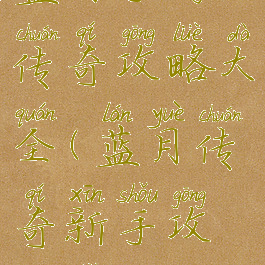 chuán qí gōng lüè dà
传奇攻略大
quán lán yuè chuán
全(蓝月传
qí xīn shǒu gōng
奇新手攻